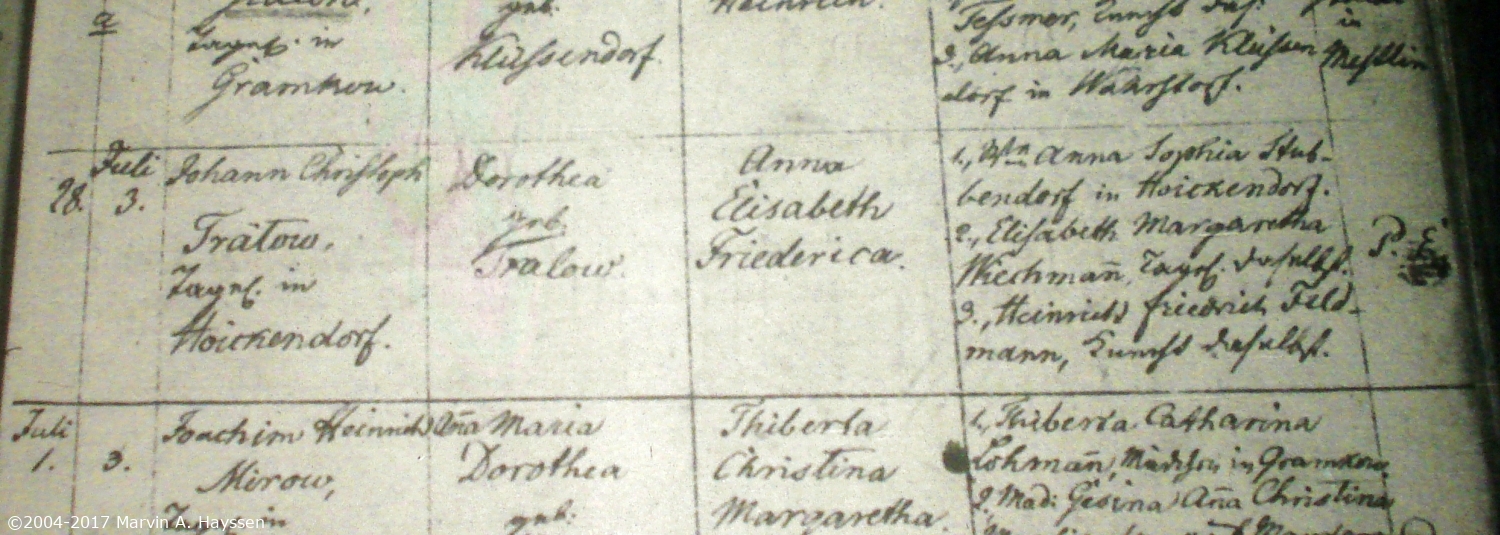 a
Tagel. in
Gramkow.
geb.
Klüssendorf.
Heinrich.
Tessmer, Knecht das.
3., Anna Maria Klüssen
dorf in Wahrstorf.
in
Mestlin
28.
Juli
3.
Johann Christoph
Trätow,
Tagel. in
Hoickendorf.
Dorothea
geb.
Tralow.
Anna
Elisabeth
Friederica.
1., Anna Sophia Stub-
bendorf in Hoickendorf.
2., Elisabeth Margaretha
Wiechmañ, Tagel. daselbst.
3., Heinrich Friedrich Feld-
mann, Knecht daselbst.
P.
Juli
1.
3.
Joachim Heinrich
Mirow,
Tagel. in
Aña Maria
Dorothea
geb:
Thiberta
Christina
Margaretha.
1., Thiberta Catharina
Lohmañ, Mädchen in Gramkow.
2. Mad: Gesina Aña Christina
©2004-2017 Marvin A. Hayssen